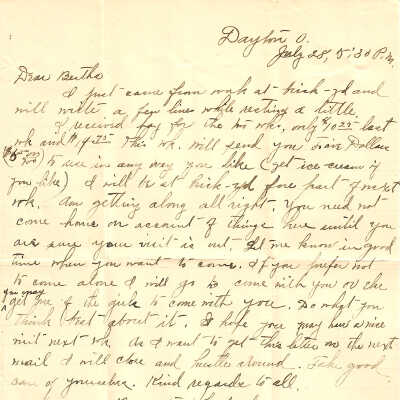 Dayton O.
July 28, 5:30 P.M.
Dear Bertha
I just came from work at brick-yd and
will write a few lines while resting a little.
I received pay for the two wks, only $10 last
wk and this wk. will send you five Dollars
to use in any way you like (get ice cream if
you like) I will be at brick-yd fore part of next
wk. Am getting along all right. You need not
come home on account of things here until you
are sure your visit is out. Let me know in good
time when you want to come. If you prefer not
to come alone I will go & come with you or else
you may
get one of the girls to come with you. Do what you
think best about it. I hope you may have a nice
visit next wk. As I want to get this letter on the next
mail I will close and hustle around. Take good
care of yourselves. Kind regards to all.